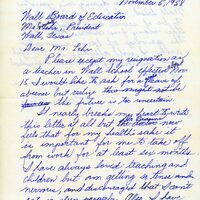 November 5, 1958
Wall Board of Education
Mr. Fehr, President
Wall, Texas
Dear Mr. Fehr
Please accept my resignation as
a teacher in Wall School effective Nov.
15. I would like to ask for a leave of
absence but realize the
the future is so uncertain
I nearly breaks my heart to write
this letter at all but the doctor now
feels that for my health's sake it
is important for me to take off
from work for at least six months.
I have always loved teaching and
children but am getting so tense and
nervous, and discouraged that I can't
I have